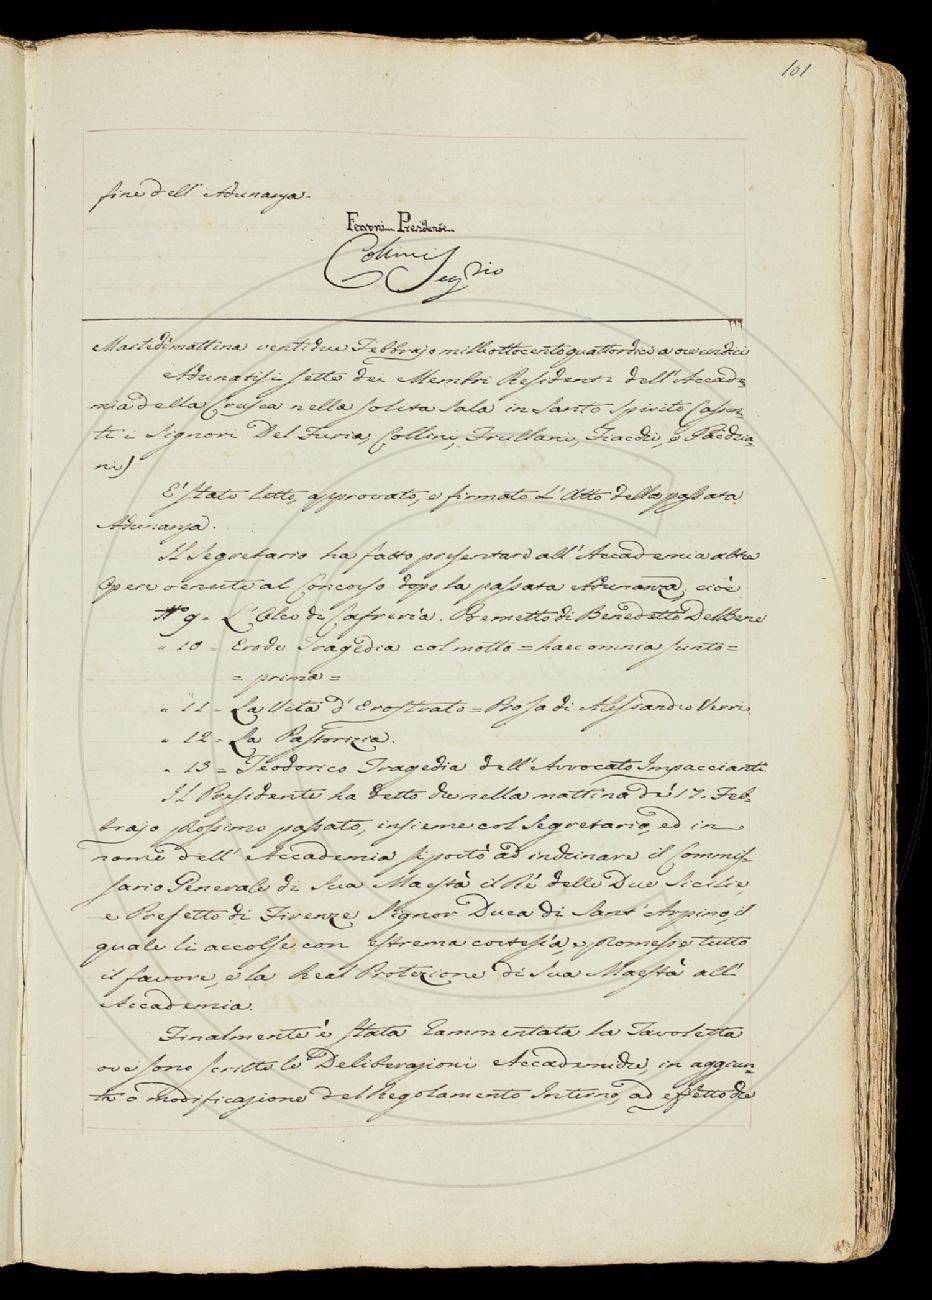 101
fine dell' Adunanza.
Ferroni Presidente
Collini Seg.rio
Martedì mattina ventidue Febbrajo milleottocentoquattordici a ore undici
Adunatisi sette dei Membri Residenti dell' Accade-
mia della Crusca nella solita sala in Santo Spirito (assen-
ti i Signori Del Furia, Collini, Frullani, Fiacchi, e
ni)
E' stato letto, approvato, e firmato l' Atto della passata
Adunanza.
Il Segretario ha fatto presentare all' Accademia altre
Opere venute al Concorso dopo la passata Adunanza, cioè
N.o 9 = L' Olco di Cafreria. Poemetto di Benedetto Del Bene
" 10 = Erode Tragedia col motto = haec omnia sunto =
= prima =
" 11 = La Vita d' Erostrato = Prosa di Alessandro Verri
" 12 = La Pastorizia.
" 13 = Teodorico Tragedia dell' Avvocato Impaccianti
Il Presidente ha detto che nella mattina de' 17. Feb-
brajo prossimo passato, insieme col Segretario, ed in
nome dell' Accademia si portò ad inchinare il Commis-
sario Generale di Sua Maestà il Rè delle Due Sicilie,
e Prefetto di Firenze Signor Duca di Sant' Arpino, il
quale li accolse con estrema cortesìa, e promesse tutto
il favore, e la Real Protezione di Sua Maestà all'
Accademia.
Finalmente è stata rammentata la Tavoletta
ove sono scritte le Deliberazioni Accademiche, in aggiun-
ta o modificazione del Regolamento Interno, ad effetto che